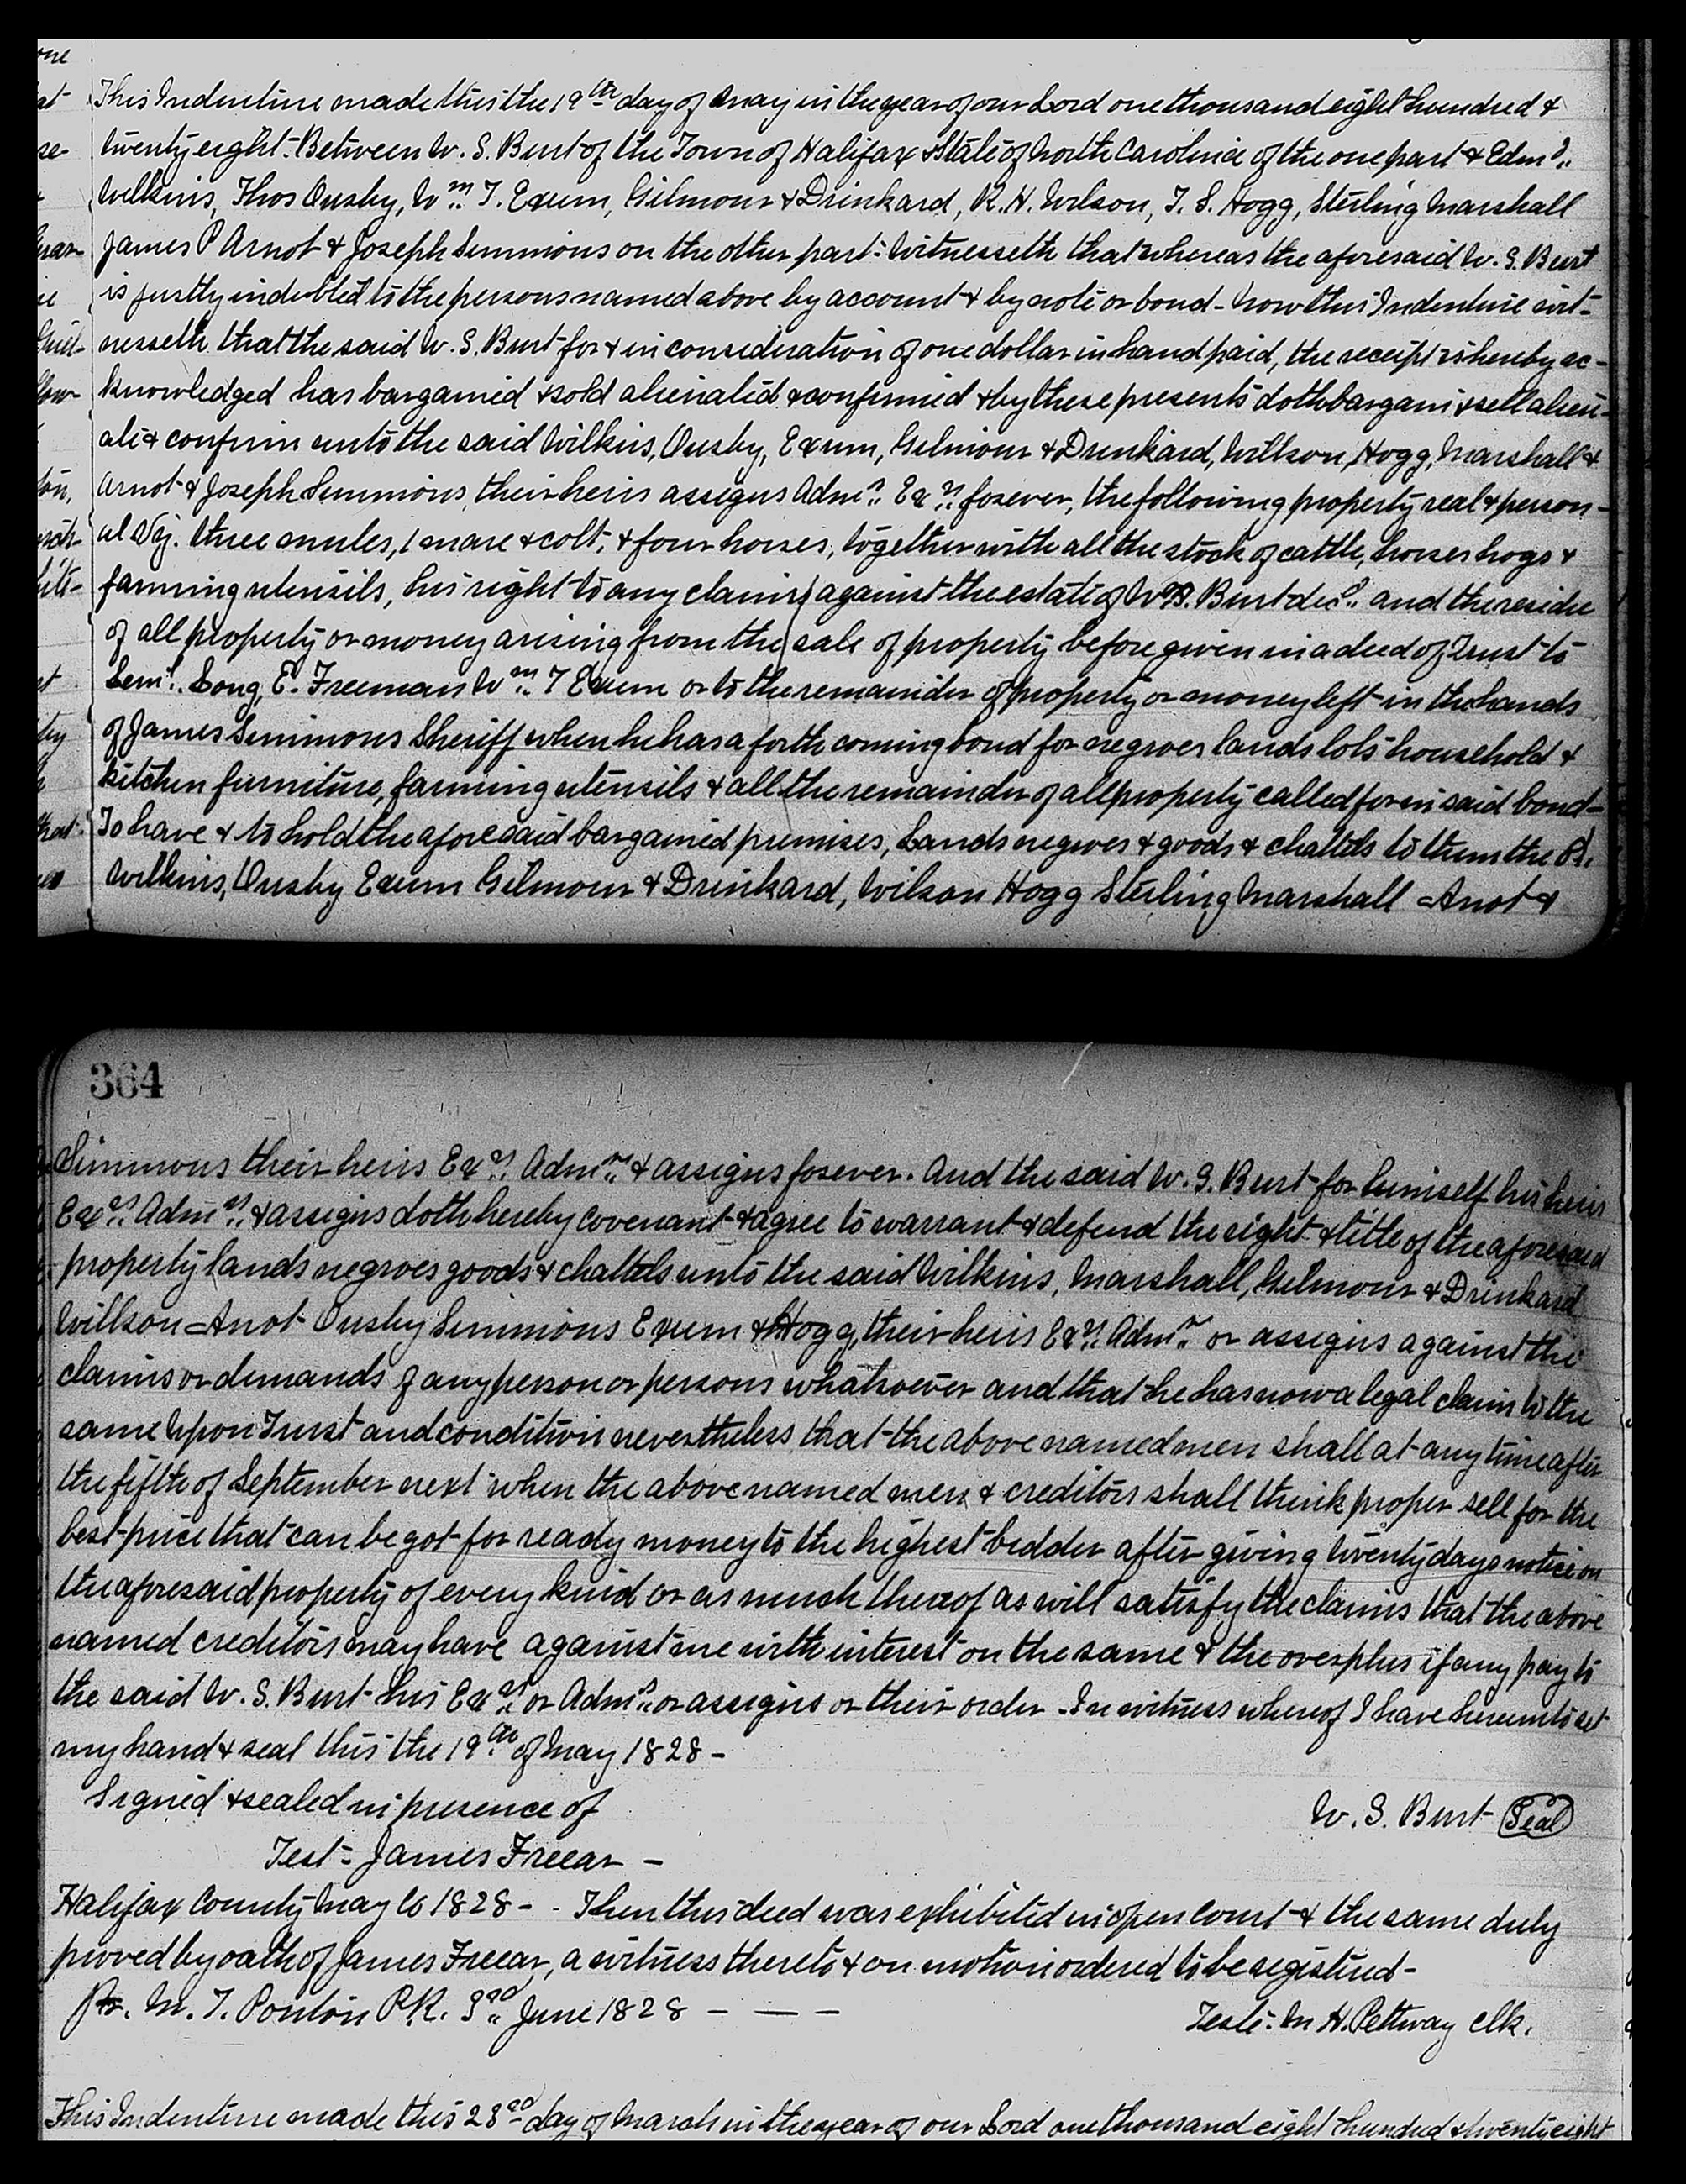 This Indenture made this the 19th day of May in the year of our Lord one thousand eight hundred &
twenty eight. Between W. S. Burt of the Town of Halifax & State of North Carolina of the one part & Edmd.
Wilkins, Thos Ousby, Wm. T. Exum, Gilmour & Drinkard, R. H. Wilson, T. S. Hogg, Sterling Marshall
James P Arnot & Joseph Simmons on the other part: Witnesseth that whereas the aforesaid W. S. Burt
is justly indebted to the persons named above by account & by note or bond - Now this Indenture wit-
nesseth that the said W. S. Burt for & in consideration of one dollar in hand paid, the receipt is hereby ac-
knowledged has bargained & sold alienated & confirmed & by these presents doth bargain & sell alien-
ate & confirm unto the said Wilkins, Ousby, Exum, Gilmour & Drinkard, Willson, Hogg, Marshall &
Arnot & Joseph Simmons, their heirs assigns Admrs. Exrs. forever, the following property real & person-
al Viz. three mules, 1 mare & colt, & four horses, together with all the stock of cattle, horses hogs &
farming utensils, his right to any claims against the estate of Wm. Burt decd. and the residue
of all property or money arising from the sale of property before given in a deed of Trust to
Leml. Long, E. Freeman Wm. T Exum or to the remainder of property or money left in the hands
of James Simmons Sheriff when he has a forth coming bond for negroes lands lots household &
kitchen furniture, farming utensils & all the remainder of all property called for in said bond-
To have & to hold the aforesaid bargained premises, Lands negroes & goods & chattels to them the sd.
Wilkins, Ousby Exum Gilmour & Drinkard, Wilson Hogg Sterling Marshall Arnot &
364
Simmons their heirs Exrs. Admrs. & assigns forever. And the said W. S. Burt for himself his heirs
Exrs. Admrs. & assigns doth hereby covenant & agree to warrant & defend the right & title of the aforesaid
property lands negroes goods & chattels unto the said Wilkins, Marshall, Gilmour & Drinkard
Willson Arnot Ousby Simmons Exum & Hogg, their heirs Exrs. Admrs. or assigns against the
claims or demands of any person or persons whatsoever and that he has now a legal claim to the
same Upon Trust and condition nevertheless that the above named men shall at any time after
the fifth of September next when the above named men & creditors shall think proper sell for the
best price that can be got for ready money to the highest bidder after giving twenty days notice on
the aforesaid property of every kind or as much thereof as will satisfy the claims that the above
named creditors may have against me with interest on the same & the overplus if any pay to
the said W. S. Burt his Exrs. or Admrs. or assigns or their order - In witness whereof I have hereunto set
my hand & seal this the 19th of May 1828 -
Signed & sealed in presence of
W. S. Burt Seal
Test - James Freear -
Halifax County May Co 1828 - - Then this deed was exhibited in open Court & the same duly
proved by oath of James Freear, a witness thereto & on motion ordered to be registered -
Pr. M. T. Ponton P.R. 3rd. June 1828 - - -
Teste: M H. Pettway Clk.
This Indenture made this 28th day of March in the year of our Lord one thousand eight hundred & twenty eight